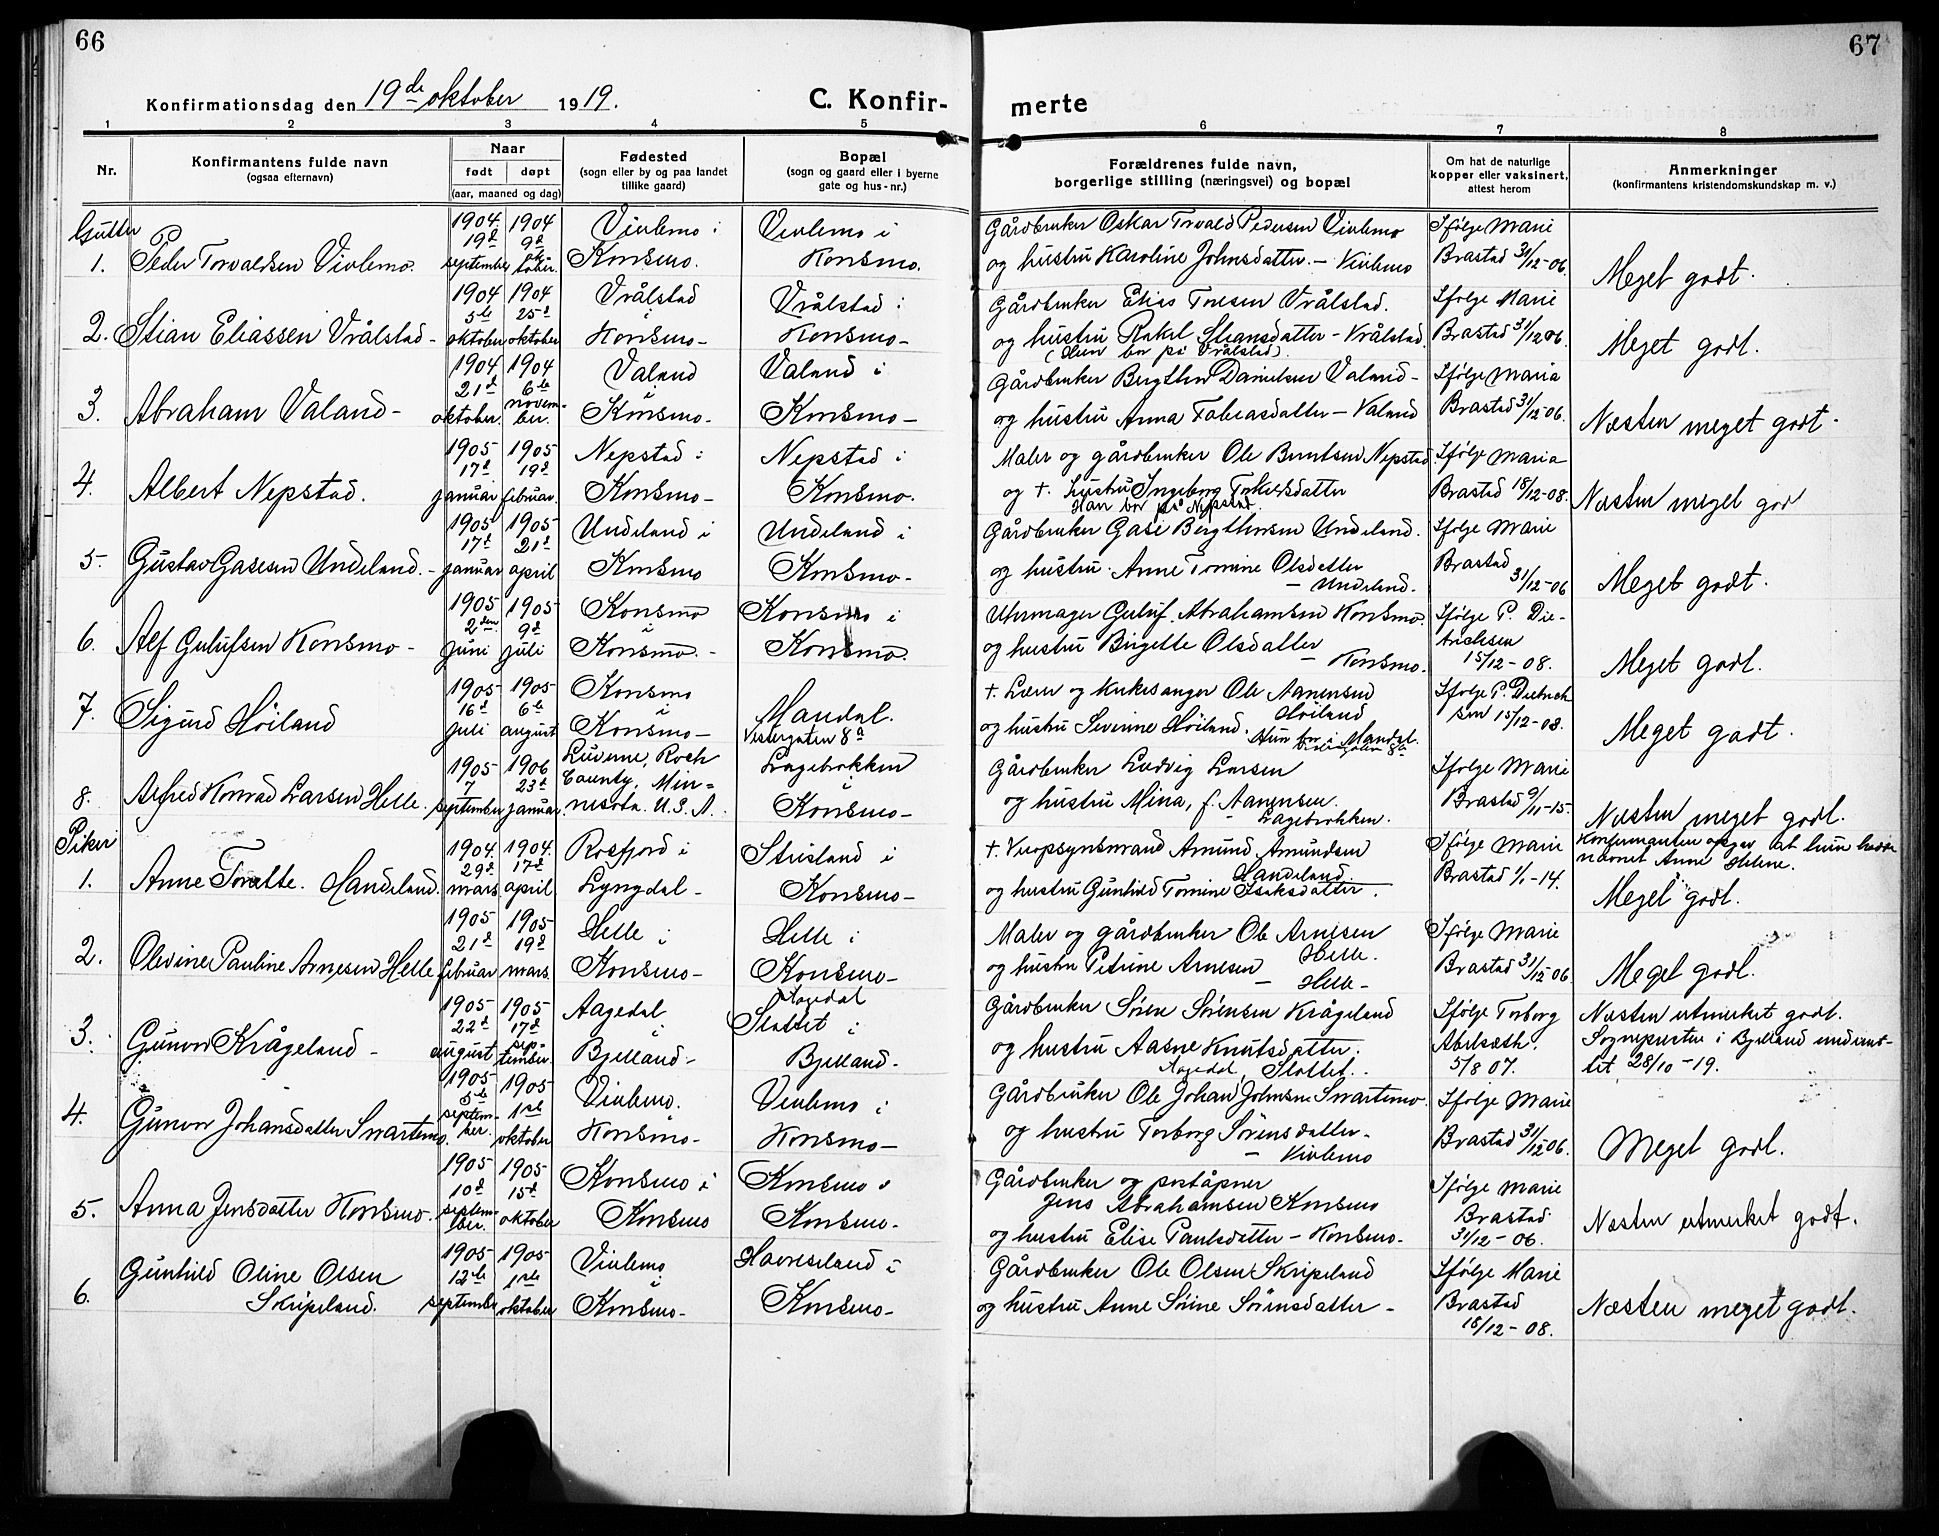 66
67
Konfirmationsdag den 19de oktober 1919.
C. Konfir-
merte
1 2 3 4 5 6 7 8
Nr.
Konfirmantens fulde navn
(ogsaa efternavn)
Naar
født døpt
(aar, maaned og dag)
Fødested
(sogn eller by og paa landet
tillike gaard)
Bopæl
(sogn og gaard eller i byerne
gate og hus-nr.)
Forældrenes fulde navn,
borgerlige stilling (næringsvei) og bopæl
Om hat de naturlige
kopper eller vaksinert,
attest herom
Anmerkninger
(konfirmantens kristendomskundskap m. v.)
Gutter
1. Peder Torvaldsen Vivlemo.
1904 19d september
1904 9d oktober.
Vivlemo i
Konsmo.
Vivlemo i
Konsmo.
Gårdbruker Oskar Torvald Pedersen Vivlemo
og hustru Karoline Johnsdatter. - Vivlemo
Ifølge Marie
Brastad 31/12-06.
Meget godt.
2. Stian Eliassen Vrålstad -
1904 5te oktober
1904 25d oktober
Vrålstad
i
Konsmo-
Vrålstad i
Konsmo-
Gårdbruker Elias Tonesen Vrålstad.
og hustru Rakel Stiansdatter - Vrålstad.
(Hun bor på Vrålstad).
Ifølge Marie
Brastad 31/12 06.
Meget godt.
3. Abraham Valand -
1904 21d oktober.
1904 6te novem-
ber.
Valand
i
Konsmo.
Valand i
Konsmo-
Gårdbruker Bergthor Danielsen Valand-
og hustru Anna Tobiasdatter - Valand
Ifølge Maria
Brastad 31/12-06.
Næsten meget godt-
4. Albert Nepstad.
1905 17d januar
1905 19d februar.
Nepstad i
Konsmo-
Nepstad i
Konsmo.
Maler og gårdbruker Ole Berntsen Nepstad.
og +. hustru Ingeborg Torkelsdatter
Han bor på Nepstad.
Ifølge Maria
Brastad 18/12-08.
Næsten meget god
5- Gustav Gasesen Undeland. -
1905 17d januar
1905 21d april
Undeland i
Konsmo
Undeland i
Konsmo-
Gårdbruker Gase Bergthorsen Undeland.
og hustru. Anne Tomine Olsdatter
- Undeland.
Ifølge Marie
Brastad
31/12-06
Meget godt.
6. Alf Gulufsen Konsmo -
1905 2den juni
1905 9d juli
Konsmo
i
Konsmo. -
Konsmo i
Konsmo.
Uhrmager Guluf Abrahamsen Konsmo.
og hustru Birgette Olsdatter
- Konsmo.
Ifølge P. Die-
trichsen
15/12-08.
Meget godt.
7. Sigurd Høiland
1905 16d juli
1905 6te august
Konsmo
i
Konsmo-
Mandal.
Vestergaten 8a
+. Lærer og kirkesanger Ole Aanensen
Høiland
og hustru Severine Høiland. Hun bor i Mandal.
Vestergaten 8a
Ifølge P. Dietrich
sen 15/12-08.
Meget godt.
8. Alfred Konrad Larsen Helle.
1905 7 september
1906 23d januar.
Luverne, Roch
County, Min-
nesota. U.S.A.
Lagebrokken
i
Konsmo-
Gårdbruker Ludvig Larsen
og hustru Mina, f. Aanensen.
- Lagebrokken.
Ifølge Marie
Brastad 9/11-15.
Næsten meget godt.
Piker
1. Anne Tomette. Handeland.
1904. 29d mars.
1904. 17d april
Rosfjord i
Lyngdal-
Strisland i
Konsmo-
+. Veiopsynsmand Amund Amundsen
Handeland.
og hustru Gunhild Tomine Isaksdatter.
Ifølge Marie
Brastad 1/1-14.
Konfirmanten opgav at hun hadde
navnet Anne Helene.
Meget godt.
2. Olevine Pauline Arnesen Helle
1905 21d februar
1905 19d mars.
Helle i
Konsmo-
Helle i
Konsmo-
Maler og gårdbruker Ole Arnesen
Helle.
og hustru Petrine Arnesen
- Helle-
Ifølge Marie
Brastad 31/12 06.
Meget godt.
3. Gunvor Krågeland -
1905 22d august
1905 17d sep-
tember.
Aagedal
i
Bjelland-
Aagedal
Slottet i
Bjelland-
Gårdbruker Søren Sørensen Krågeland
og hustru Aasne Knutsdatter.
Aagedal, Slottet.
Ifølge Torborg
Abelsæth.
5/8 07.
Næsten utmerket godt.
Sognepresten i Bjelland underret-
tet 28/10-19.
4. Gunvor Johansdatter Svartemo.
1905 5te septem-
ber.
1905 1ste oktober
Vivlemo.
Konsmo-
Vivlemo i
Konsmo-
Gårdbruker Ole Johan Johnsen Svartemo.
og hustru Torborg Sørensdatter-
- Vivlemo
Ifølge Marie
Brastad 31/12 06.
Meget godt.
5. Anna Jensdatter Konsmo.
1905 10d septem-
ber.
1905 15d oktober
Konsmo i
Konsmo
Konsmo i
Konsmo-
Gårdbruker og poståpner
Jens Abrahamsen Konsmo
og hustru Elise Paulsdatter - Konsmo-
Ifølge Marie
Brastad
31/12-06.
Næsten utmerket godt.
6. Gunhild Oline Olsen
Skripeland.
1905 12te september
1905 1ste oktober
Vivlemo
i
Konsmo-
Havreseland i
Konsmo-
Gårdbruker Ole Olsen Skripeland
og hustru Anne Sirine Sørensdatter -
Ifølge Marie
Brastad
18/12-08.
Næsten meget godt.